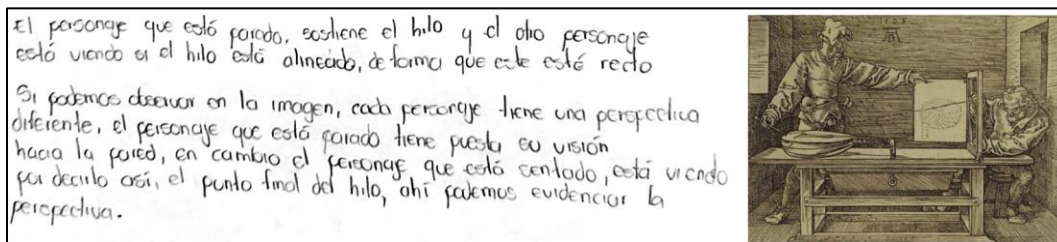 El personaje que está parado, sostiene el hilo y el otro personaje
está viendo si el hilo está alineado, de forma que este esté recto
Si podemos observar en la imagen, cada personaje tiene una perspectiva
diferente, el personaje que está parado tiene puesta su visión
hacia la pared, en cambio el personaje que está sentado, está viendo
por decirlo así, el punto final del hilo, ahí podemos evidenciar la
perspectiva.